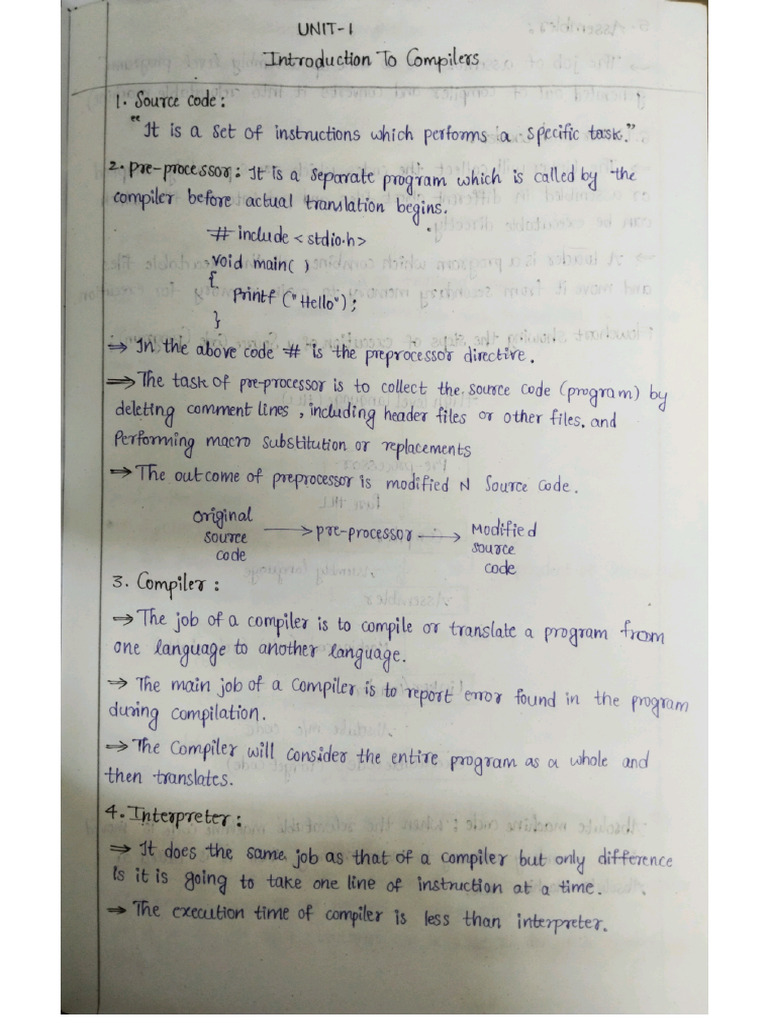 UNIT-1
Introduction To Compilers
1. Source code:
"It is a set of instructions which performs a specific task."
2. pre-processor: It is a separate program which is called by the
compiler before actual translation begins.
# include <stdio.h>
void main( )
{
printf ("Hello");
}
⇒ In the above code # is the preprocessor directive.
⇒ The task of pre-processor is to collect the source code (program) by
deleting comment lines, including header files or other files. and
performing macro substitution or replacements
⇒ The outcome of preprocessor is modified N source code.
original → pre-processor → Modified
source source
code code
3. Compiler:
⇒ The job of a compiler is to compile or translate a program from
one language to another language.
⇒ The main job of a compiler is to report error found in the program
during compilation.
⇒ The Compiler will consider the entire program as a whole and
then translates.
4. Interpreter:
⇒ It does the same job as that of a compiler but only difference
is it is going to take one line of instruction at a time.
⇒ The execution time of compiler is less than interpreter.